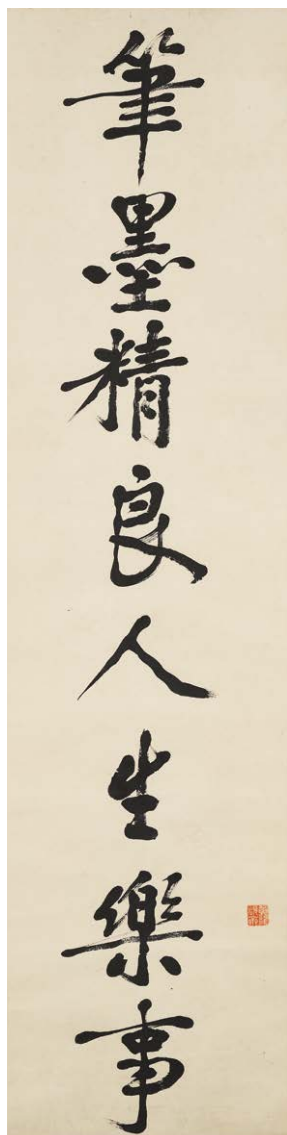 筆墨精良人生樂事